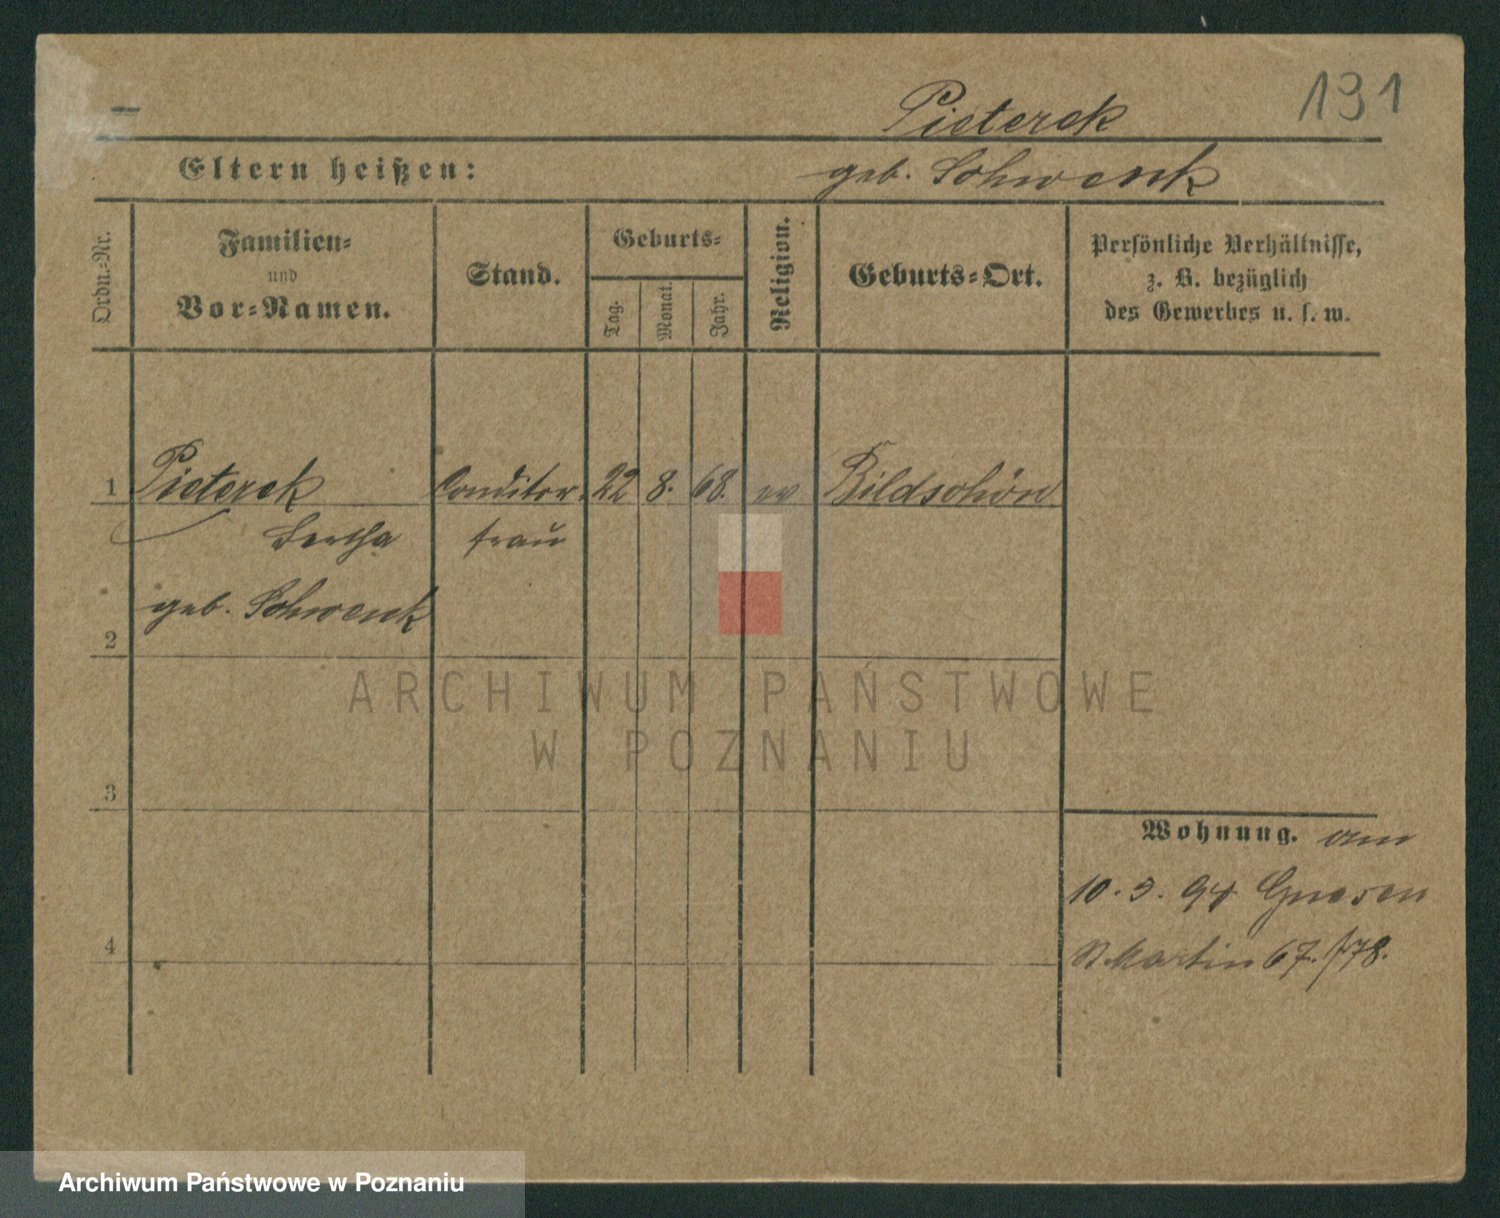 191
Pieterek
Eltern heißen:
geb. Schwenk
Ordn.-Nr.
Familien-
und
Vor-Namen.
Stand.
Geburts-
Tag.
Monat.
Jahr.
Religion.
Geburts-Ort.
Persönliche Verhältnisse,
z. B. bezüglich
des Gewerbes u. s. w.
1 Pieterek Conditor 22 8. 68. ev Bildschön
Bertha frau
geb. Schwenk
2
ARCHIWUM PAŃSTWOWE
W POZNANIU
3
Wohnung. am
10. 3. 94 Gnesen
4
St Martin 67./78.
Archiwum Państwowe w Poznaniu